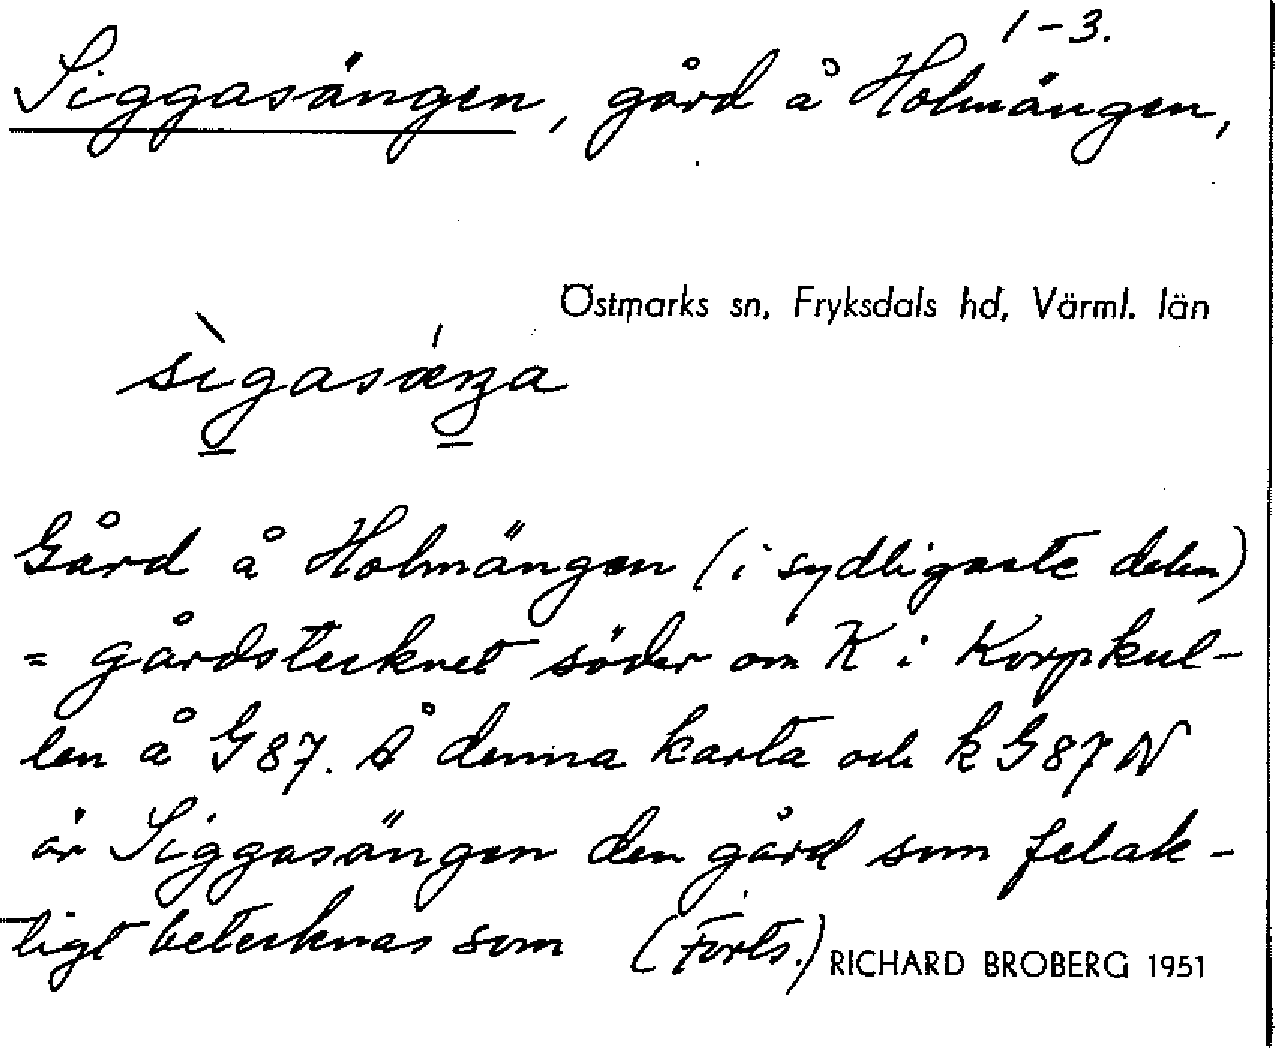 1-3.
Siggasängen, gård å Holmängen,
Östmarks sn, Fryksdals hd, Värml. län
sìgasáŋa
Gård å Holmängen (i sydligaste delen)
= gårdstecknet söder om K i Korpkul-
len å G87. Å denna karta och k G87 N
är Siggasängen den gård som felak-
tigt betecknas som (Forts.)
RICHARD BROBERG 1951